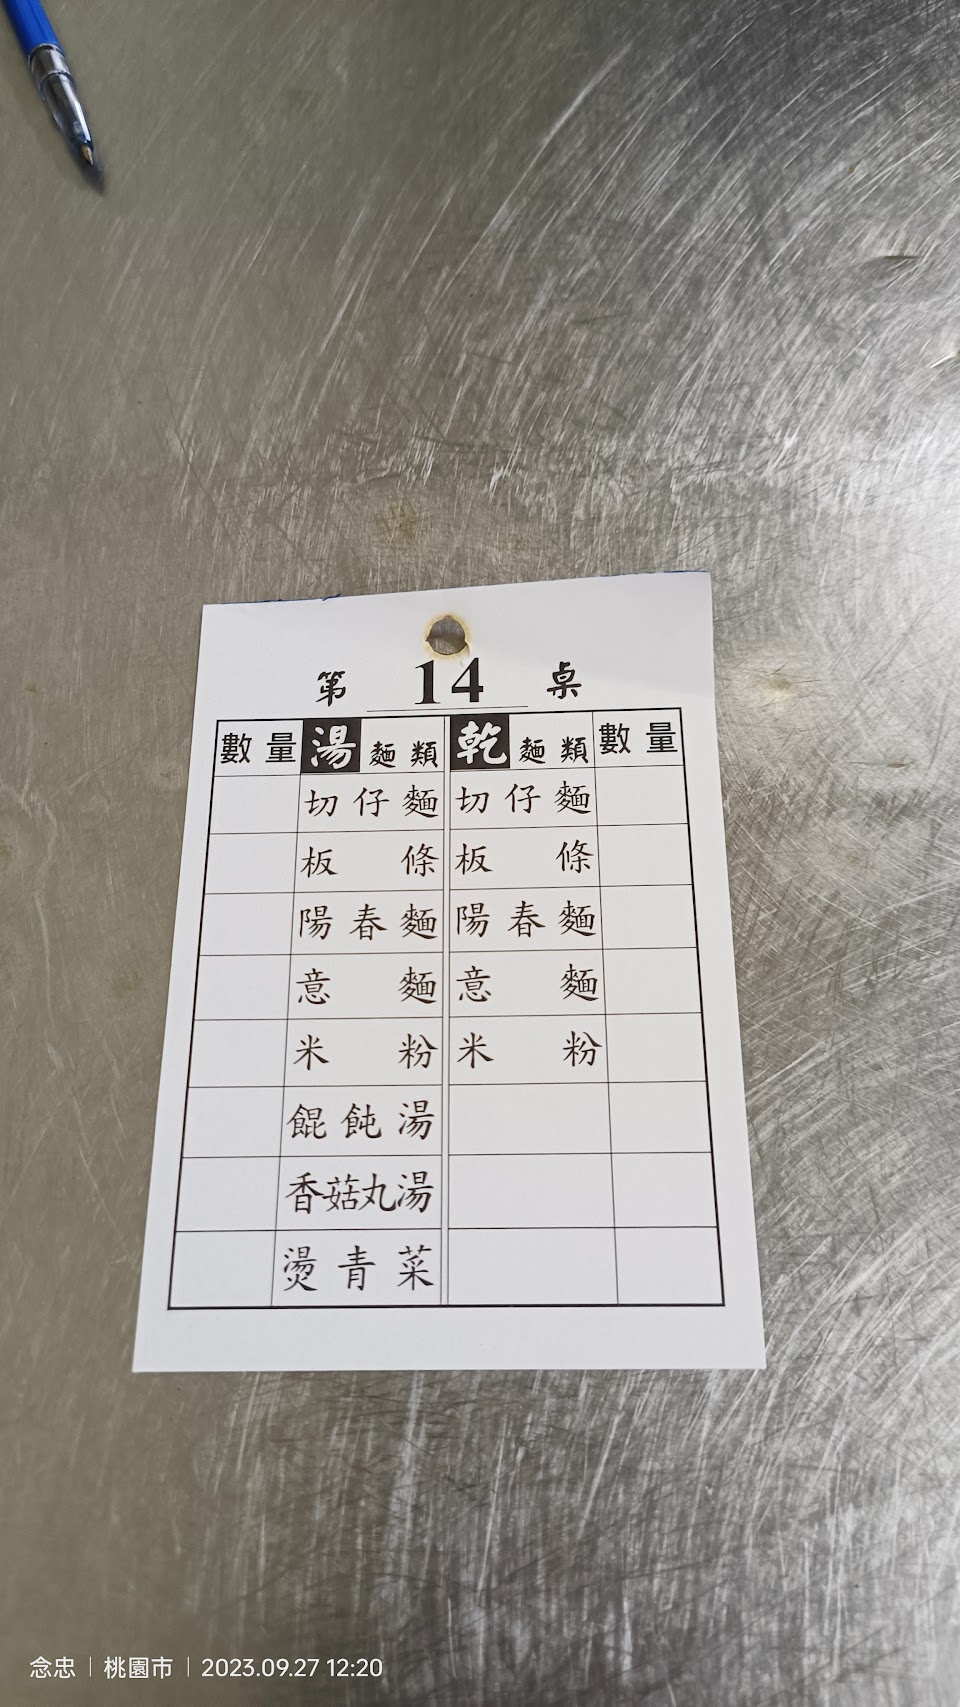 第 14 桌
數量 湯麵類 乾麵類 數量
切仔麵 切仔麵
板條 板條
陽春麵 陽春麵
意麵 意麵
米粉 米粉
餛飩湯
香菇丸湯
燙青菜
念忠 | 桃園市 | 2023.09.27 12:20